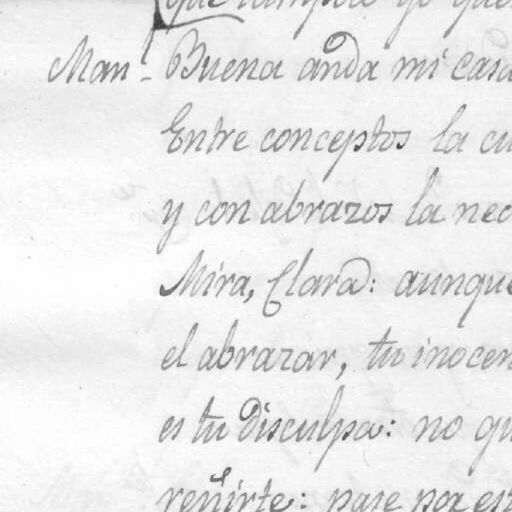 que tampoco yo que
Man.- Buena anda mi casa
Entre conceptos la cu
y con abrazos la nec
Mira, Clara: aunque
el abrazar, tu inocen
es tu disculpa: no qu
reñirte: pase por est